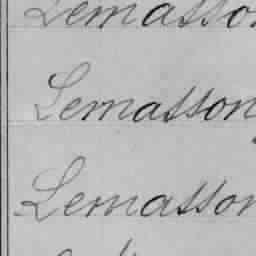 Lemasson
Lemasson
Lemasson